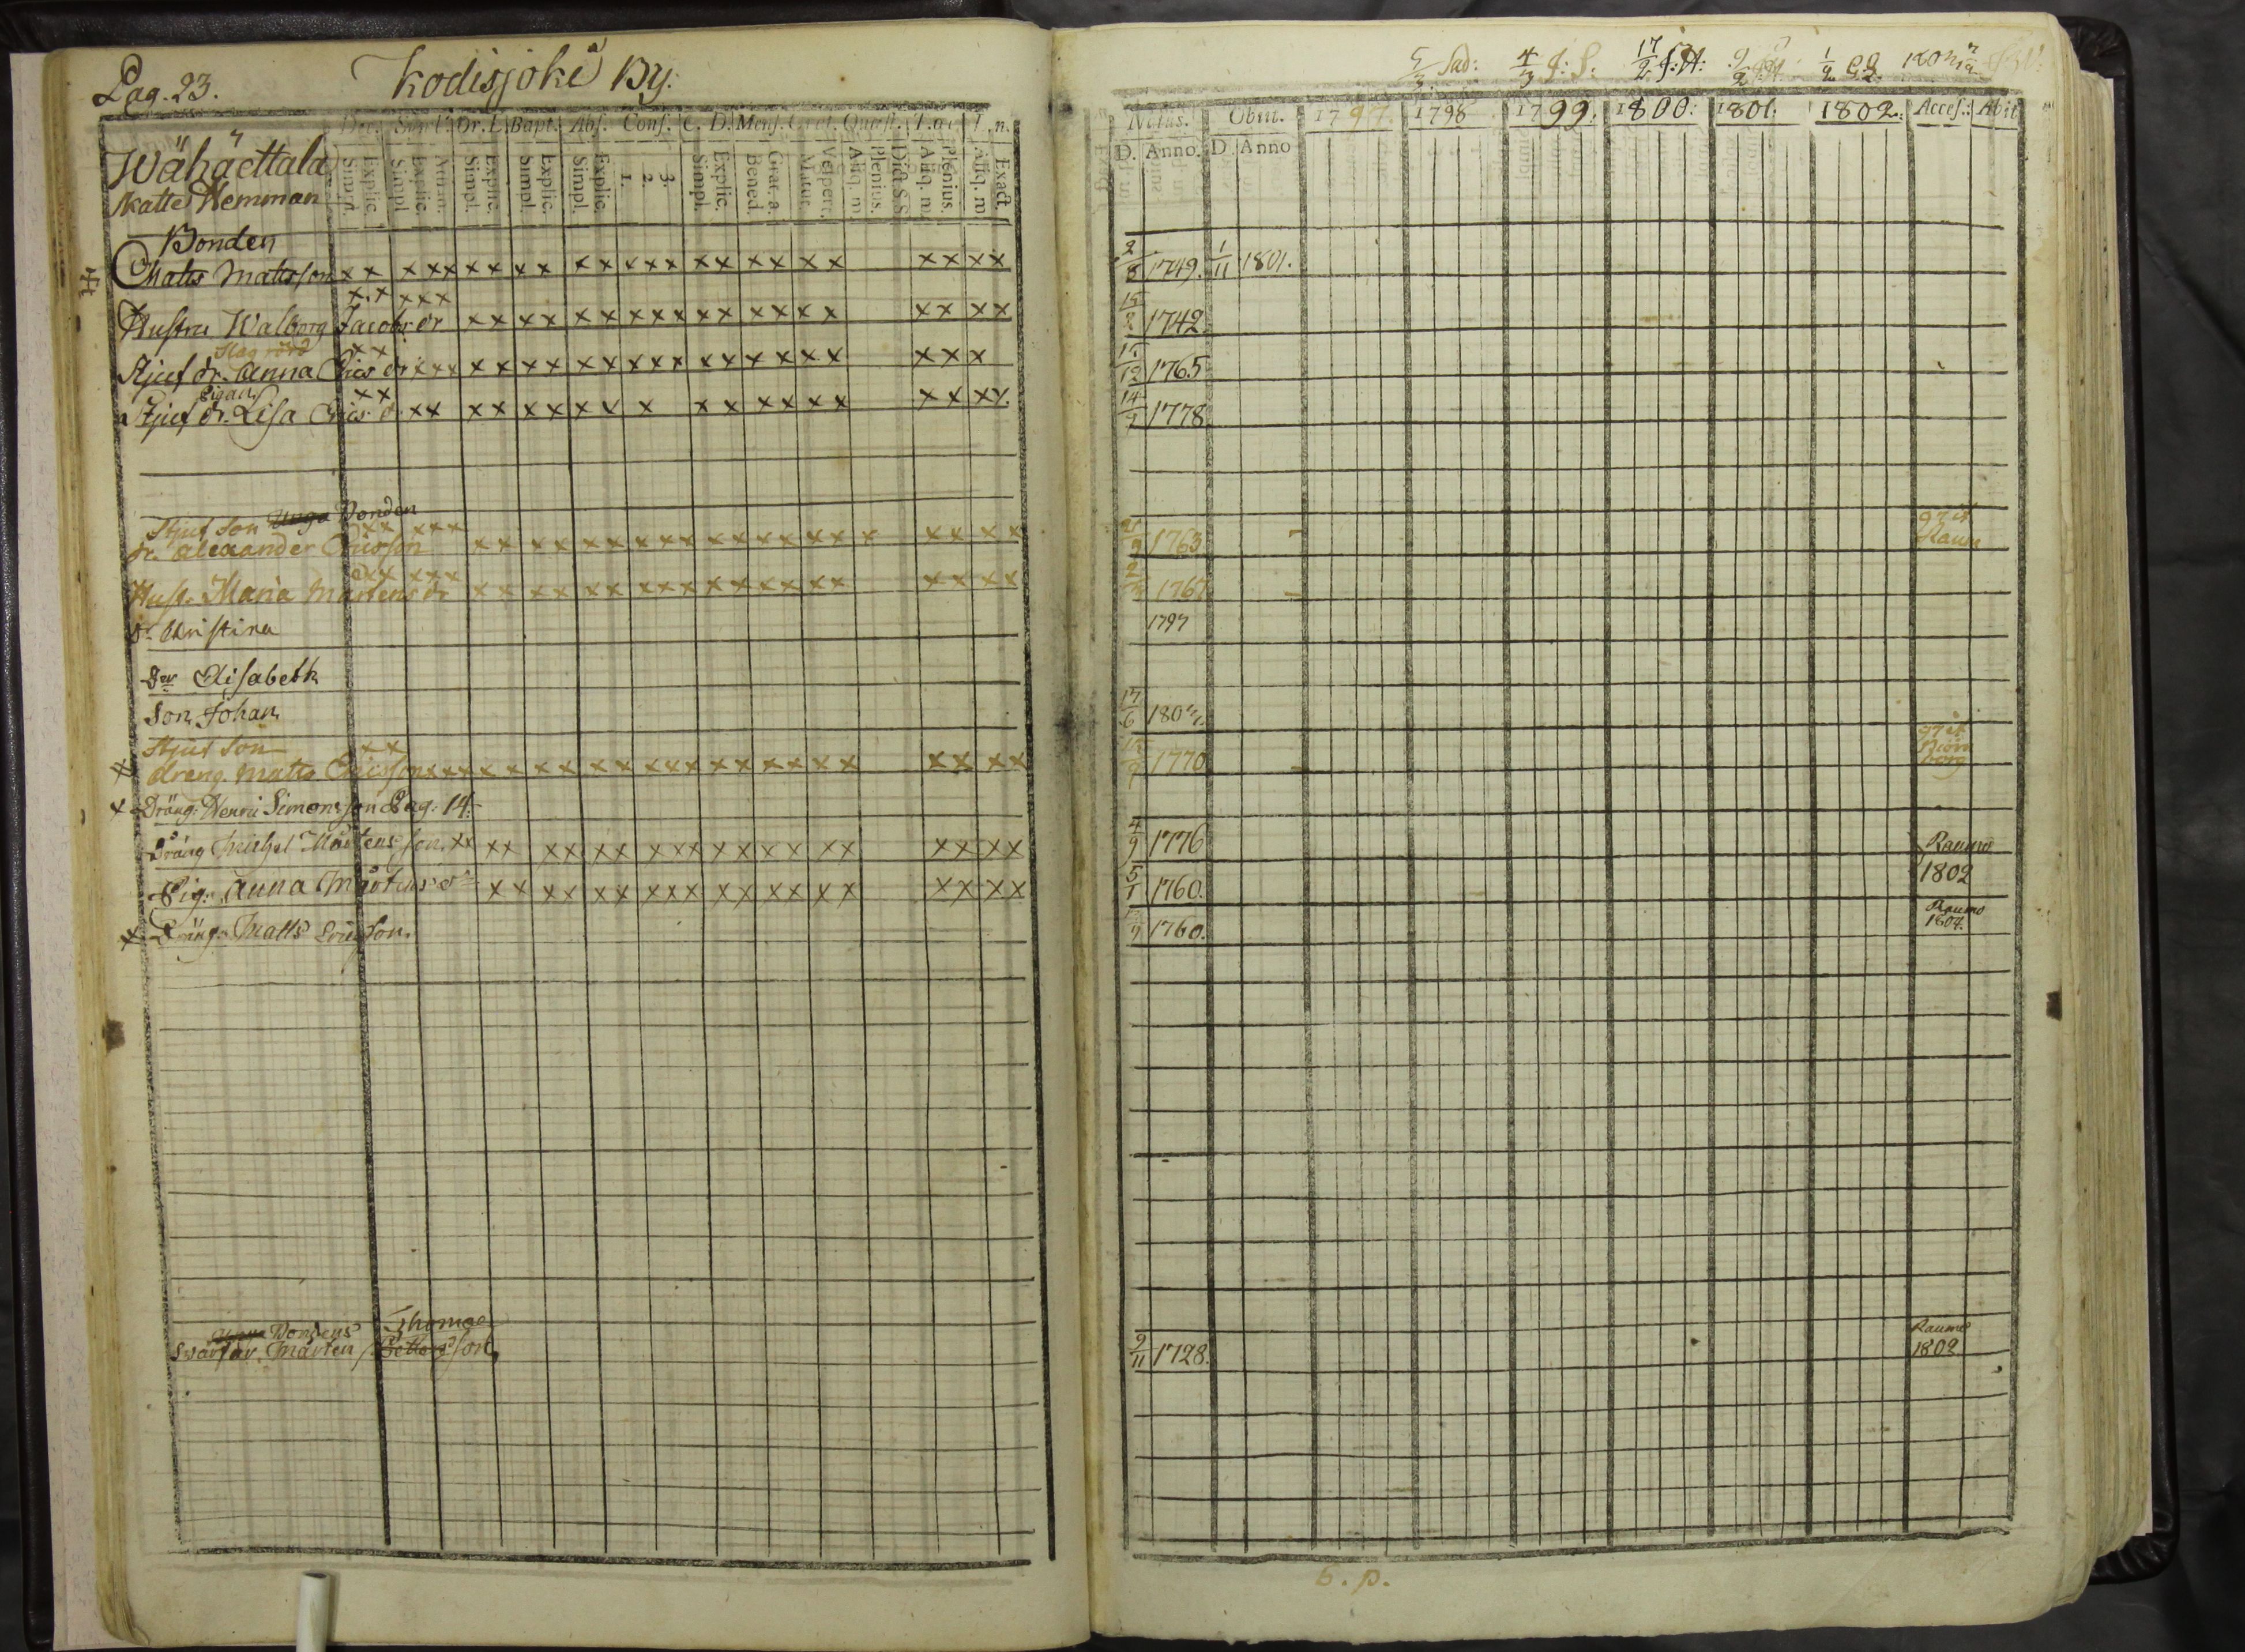 Pag. 23. Kodisjoki By:
Wähäettala
Skatte Hemman
Dr. L. Bapt. Abs. Conf. C. D. Mens. Quæst.
Simpl. Explic. Simpl. Explic. Simpl. Explic. Simpl. Explic. Simpl. Explic. 1. 2. 3. Simpl. Explic. Bened. Grat. a. Matut. Vesper. Aliq. m. Plenius. Dict. S.S. Aliq. m. Plenius. Aliq. m. Exact.
Bonden
Matts Mattsson xx xxx xx xx xx xxx xx xx xx xx xx
xx xxx
Hustru Walborg Jacobs dr xx xx xx xxx xx xx xx xx xx
xx
Stjuf dr. Anna Erics dr xxx xx xx xx xxx xx xx xx xx x
Pigan xx
Stjuf dr. Lisa Erics d xx xx xx x x x xx xx xx xx xx
Stjuf son Unga Bonden
xx xxx
dr. Alexander Ericsson xx xx xx xxx xx xx xx x xx xx
xx xxx
Hust. Maria Mårtens dr xx xx xx xxx xx xx xx xx xx
Dr. Christina
Dr Elisabeth
Son Johan
Stjuf son xx
x dreng. Matts Ericsson xxx xx xx xx xxx xx xx xx xx xx
x Dräng: Henric Simonsson Pag: 14.
Dräng Michel Mårtensson xx xx xx xx xxx xx xx xx xx xx
Pig: Anna Mårtens dr xx xx xx xxx xx xx xx xx xx
x Dräng. Matts Ericsson.
Unga Bondens Thomæ
Swärfar. Mårten Petters son
5/3 Sad: 4/3 J: S: 17/2 J: H: 9/2 1/2
Natus. Obiit. 1797. 1798 1799. 1800: 1801: 1802: Acces: Abit
D. Anno. D Anno
2/8 1749. 1/11 1801.
1742
1765
14/7 1778
1763 97 it Raum
1767
1797
17/6
1770 97 it Biörneborg
4/9 1776 Raumo
5/1 1760. 1802
1760. Raumo
1804.
9/11 1728. Raumo
1802
b. p.